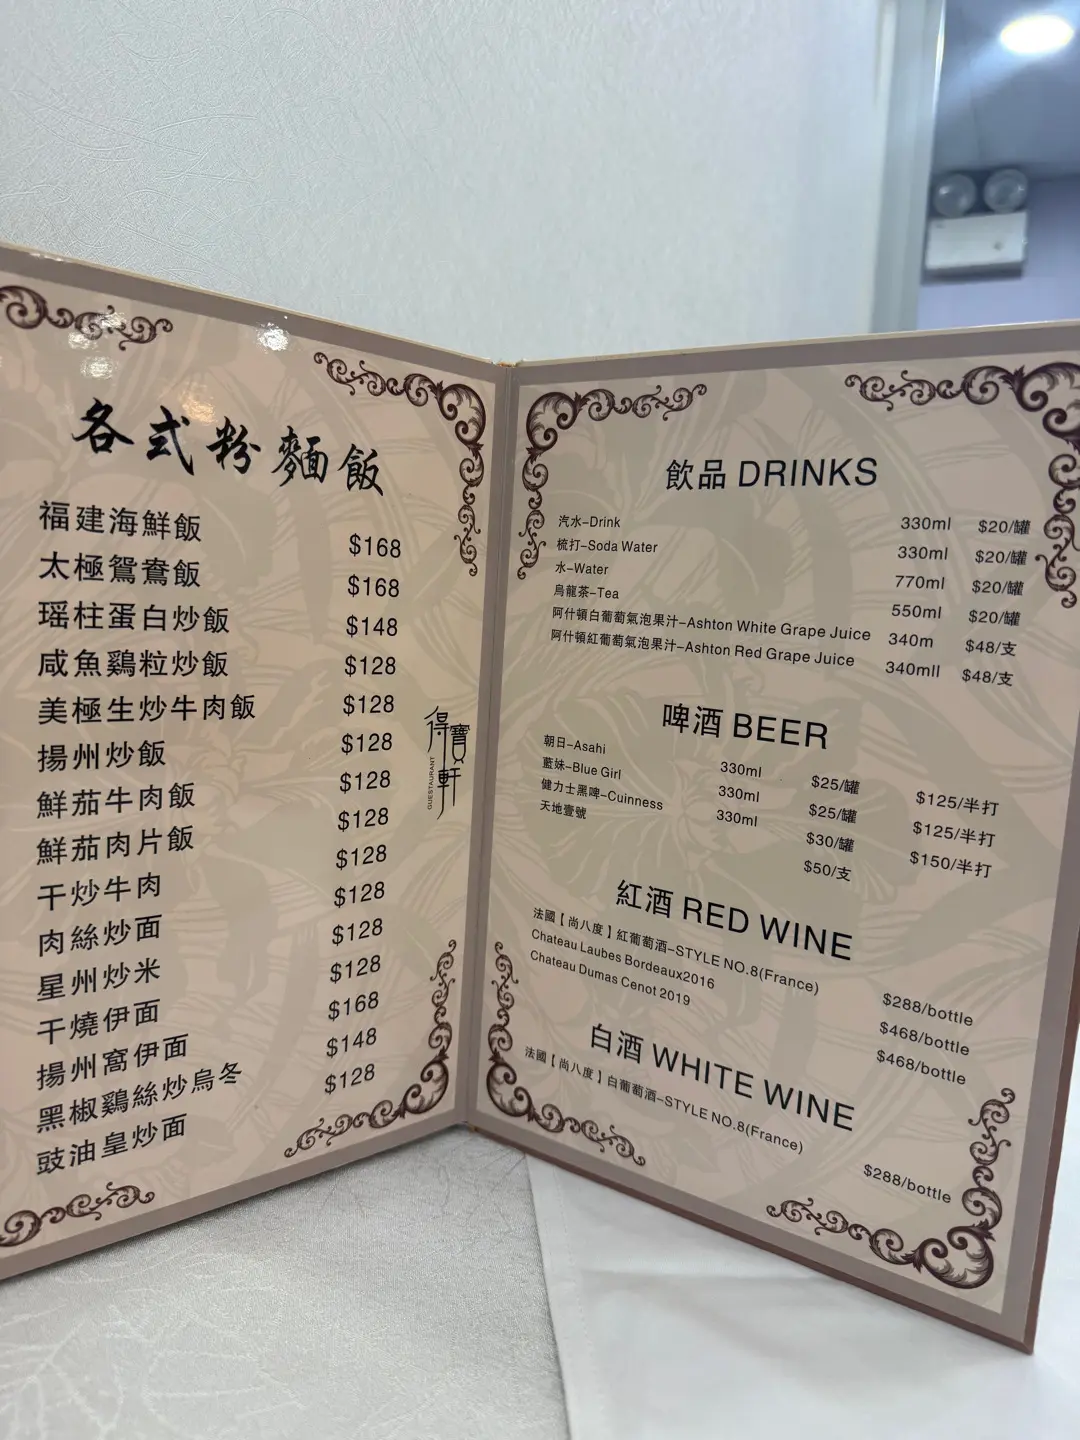 各式粉麵飯
福建海鮮飯 $168
太極鴛鴦飯 $168
瑶柱蛋白炒飯 $148
咸魚鷄粒炒飯 $128
美極生炒牛肉飯 $128
揚州炒飯 $128
鮮茄牛肉飯 $128
鮮茄肉片飯 $128
干炒牛肉 $128
肉絲炒面 $128
星州炒米 $128
干燒伊面 $128
揚州窩伊面 $168
黑椒鷄絲炒烏冬 $148
豉油皇炒面 $128
得寶軒
GUESTAURANT
飲品 DRINKS
汽水-Drink 330ml $20/罐
梳打-Soda Water 330ml $20/罐
水-Water 770ml $20/罐
烏龍茶-Tea 550ml $20/罐
阿什頓白葡萄氣泡果汁-Ashton White Grape Juice 340m $48/支
阿什頓紅葡萄氣泡果汁-Ashton Red Grape Juice 340mll $48/支
啤酒 BEER
朝日-Asahi 330ml $25/罐 $125/半打
藍妹-Blue Girl 330ml $25/罐 $125/半打
健力士黑啤-Cuinness 330ml $30/罐 $150/半打
天地壹號 $50/支
紅酒 RED WINE
法國【尚八度】紅葡萄酒-STYLE NO.8(France) $288/bottle
Chateau Laubes Bordeaux2016 $468/bottle
Chateau Dumas Cenot 2019 $468/bottle
白酒 WHITE WINE
法國【尚八度】白葡萄酒-STYLE NO.8(France) $288/bottle